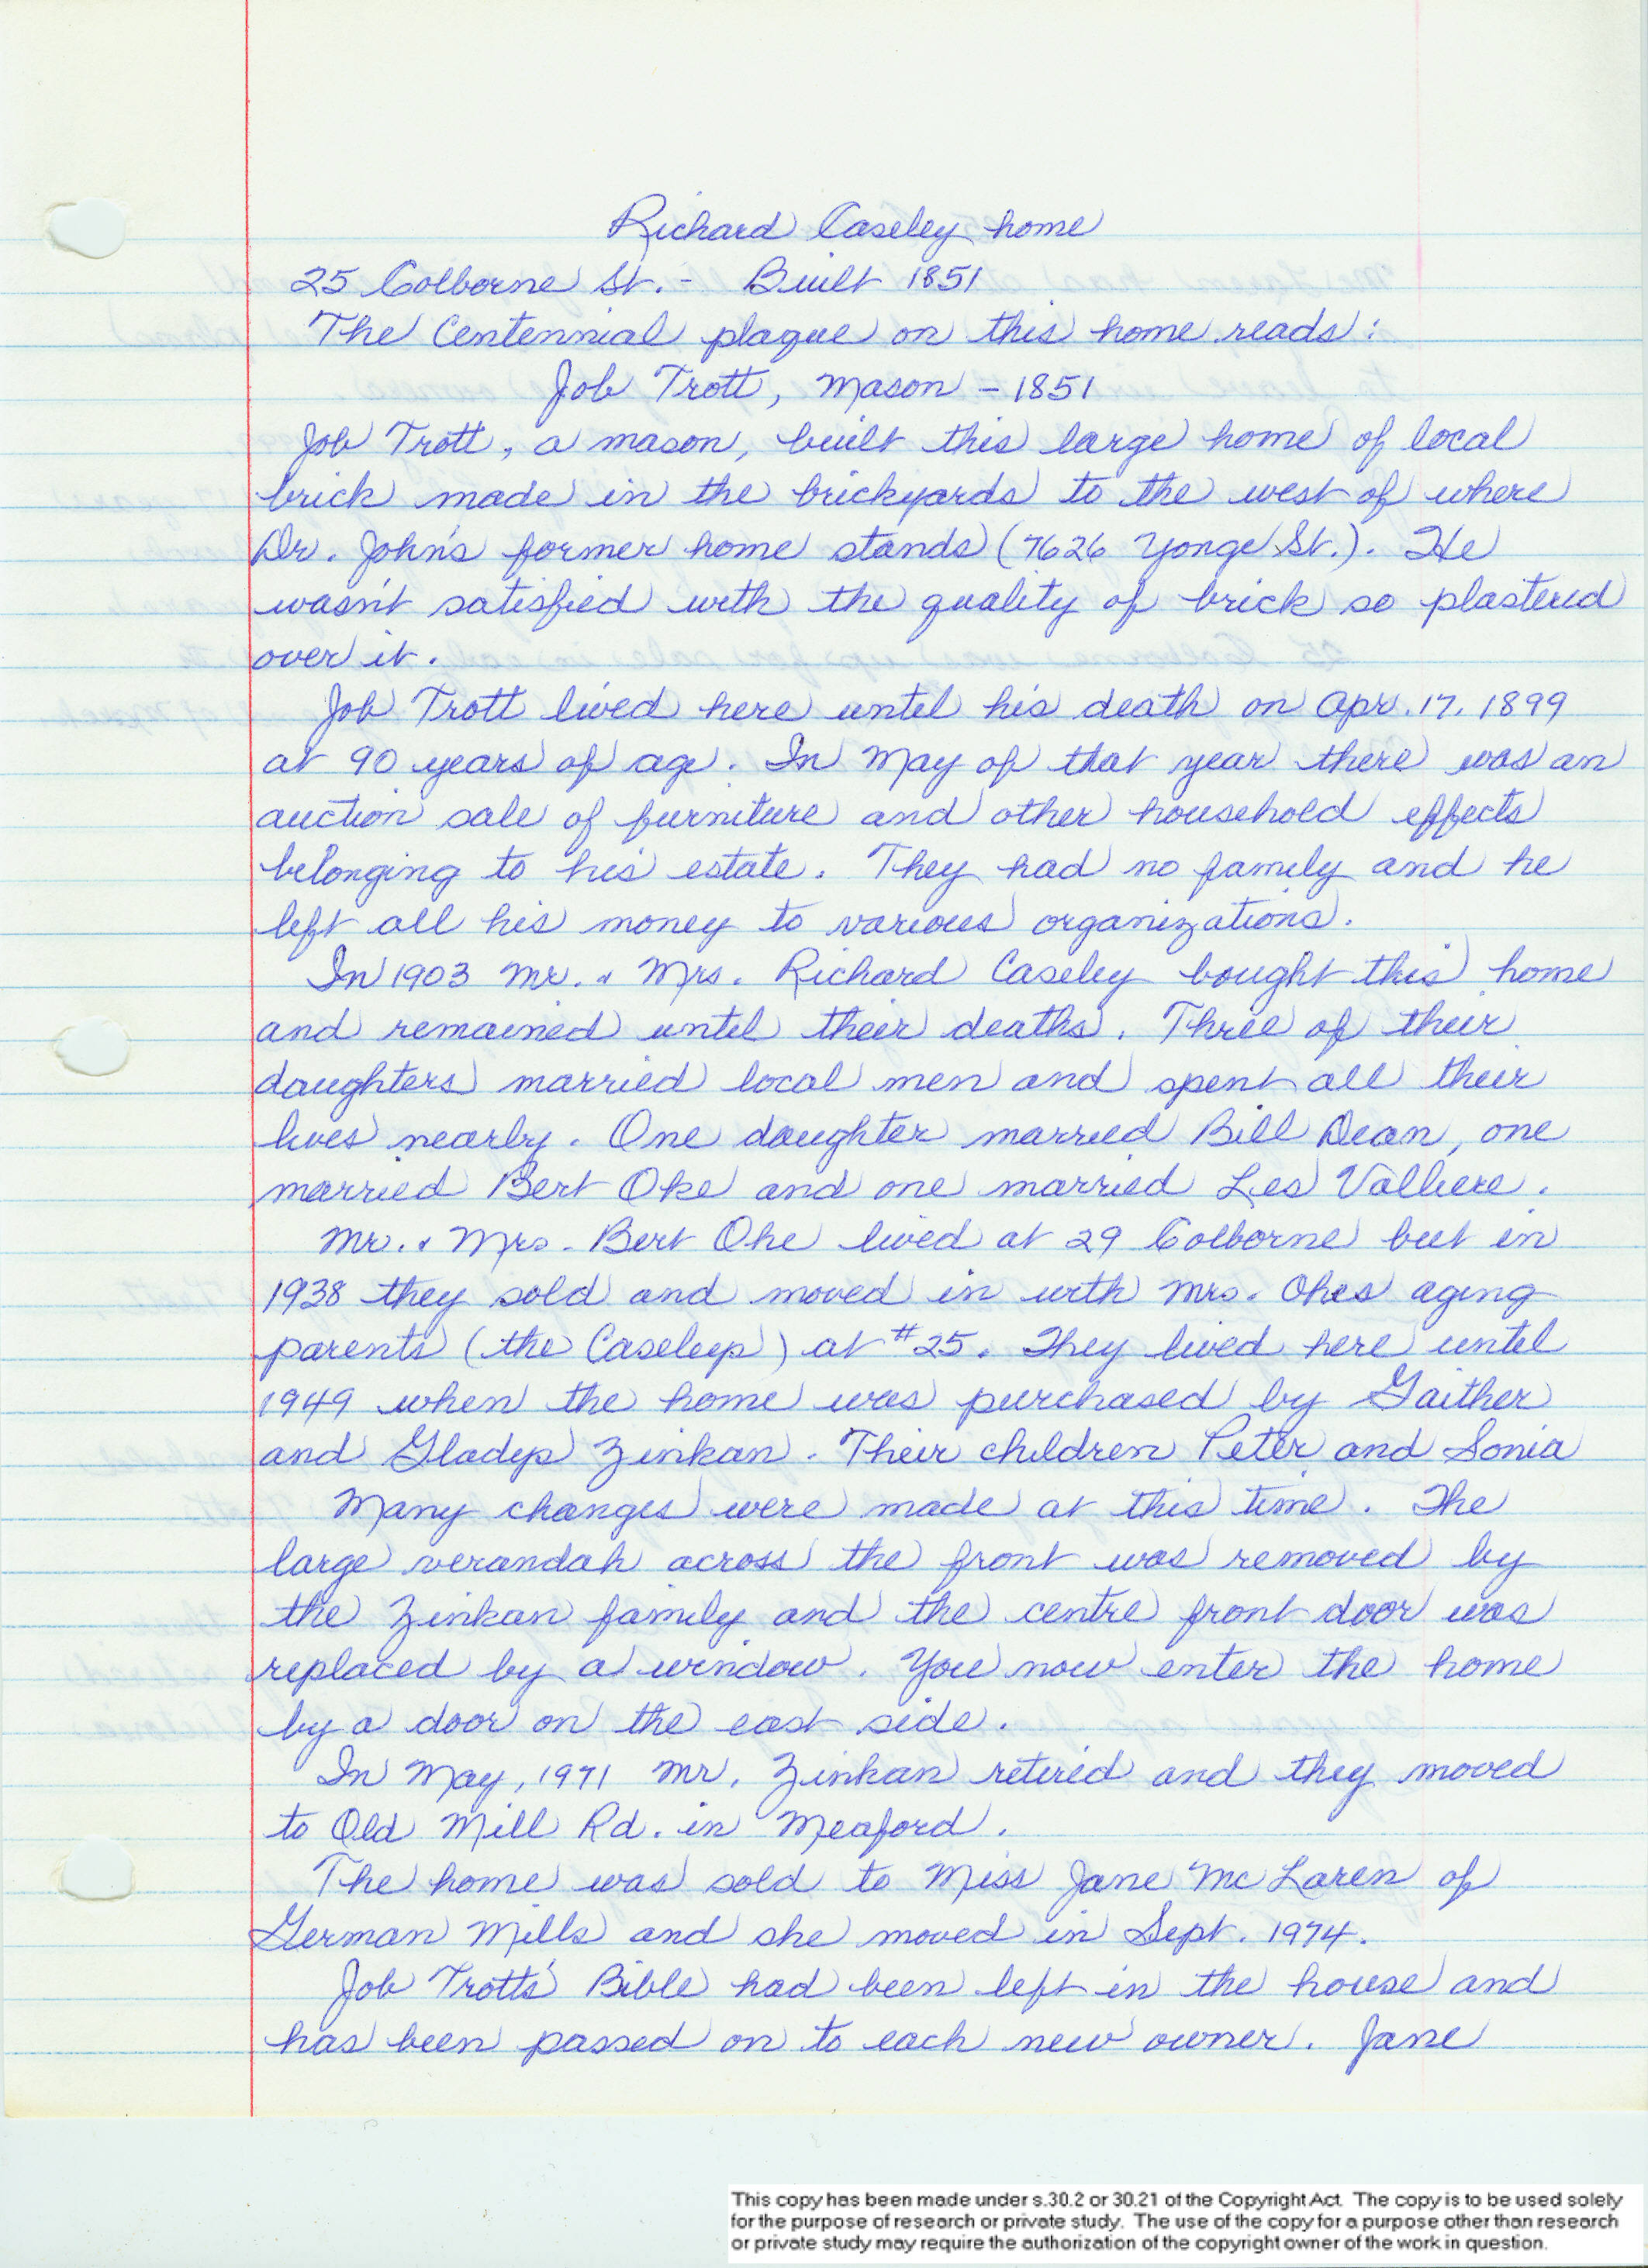 Richard Caseley home
25 Colborne St. - Built 1851
The Centennial plaque on this home reads:
Job Trott, Mason - 1851
Job Trott, a mason, built this large home of local
brick made in the brickyards to the west of where
Dr. John's former home stands (7626 Yonge St.). He
wasn't satisfied with the quality of brick so plastered
over it.
Job Trott lived here until his death on Apr. 17, 1899
at 90 years of age. In May of that year there was an
auction sale of furniture and other household effects
belonging to his estate. They had no family and he
left all his money to various organizations.
In 1903 Mr. & Mrs. Richard Caseley bought this home
and remained until their deaths. Three of their
daughters married local men and spent all their
lives nearby. One daughter married Bill Dean, one
married Bert Oke and one married Les Valliere.
Mr. & Mrs. Bert Oke lived at 29 Colborne but in
1938 they sold and moved in with Mrs. Okes aging
parents (the Caseleys) at #25. They lived here until
1949 when the home was purchased by Gaither
and Gladys Zinkan. Their children Peter and Sonia
Many changes were made at this time. The
large verandah across the front was removed by
the Zinkan family and the centre front door was
replaced by a window. You now enter the home
by a door on the east side.
In May, 1971 Mr. Zinkan retired and they moved
to Old Mill Rd. in Meaford.
The home was sold to Miss Jane McLaren of
German Mills and she moved in Sept. 1974.
Job Trott's Bible had been left in the house and
has been passed on to each new owner. Jane
This copy has been made under s.30.2 or 30.21 of the Copyright Act. The copy is to be used solely
for the purpose of research or private study. The use of the copy for a purpose other than research
or private study may require the authorization of the copyright owner of the work in question.